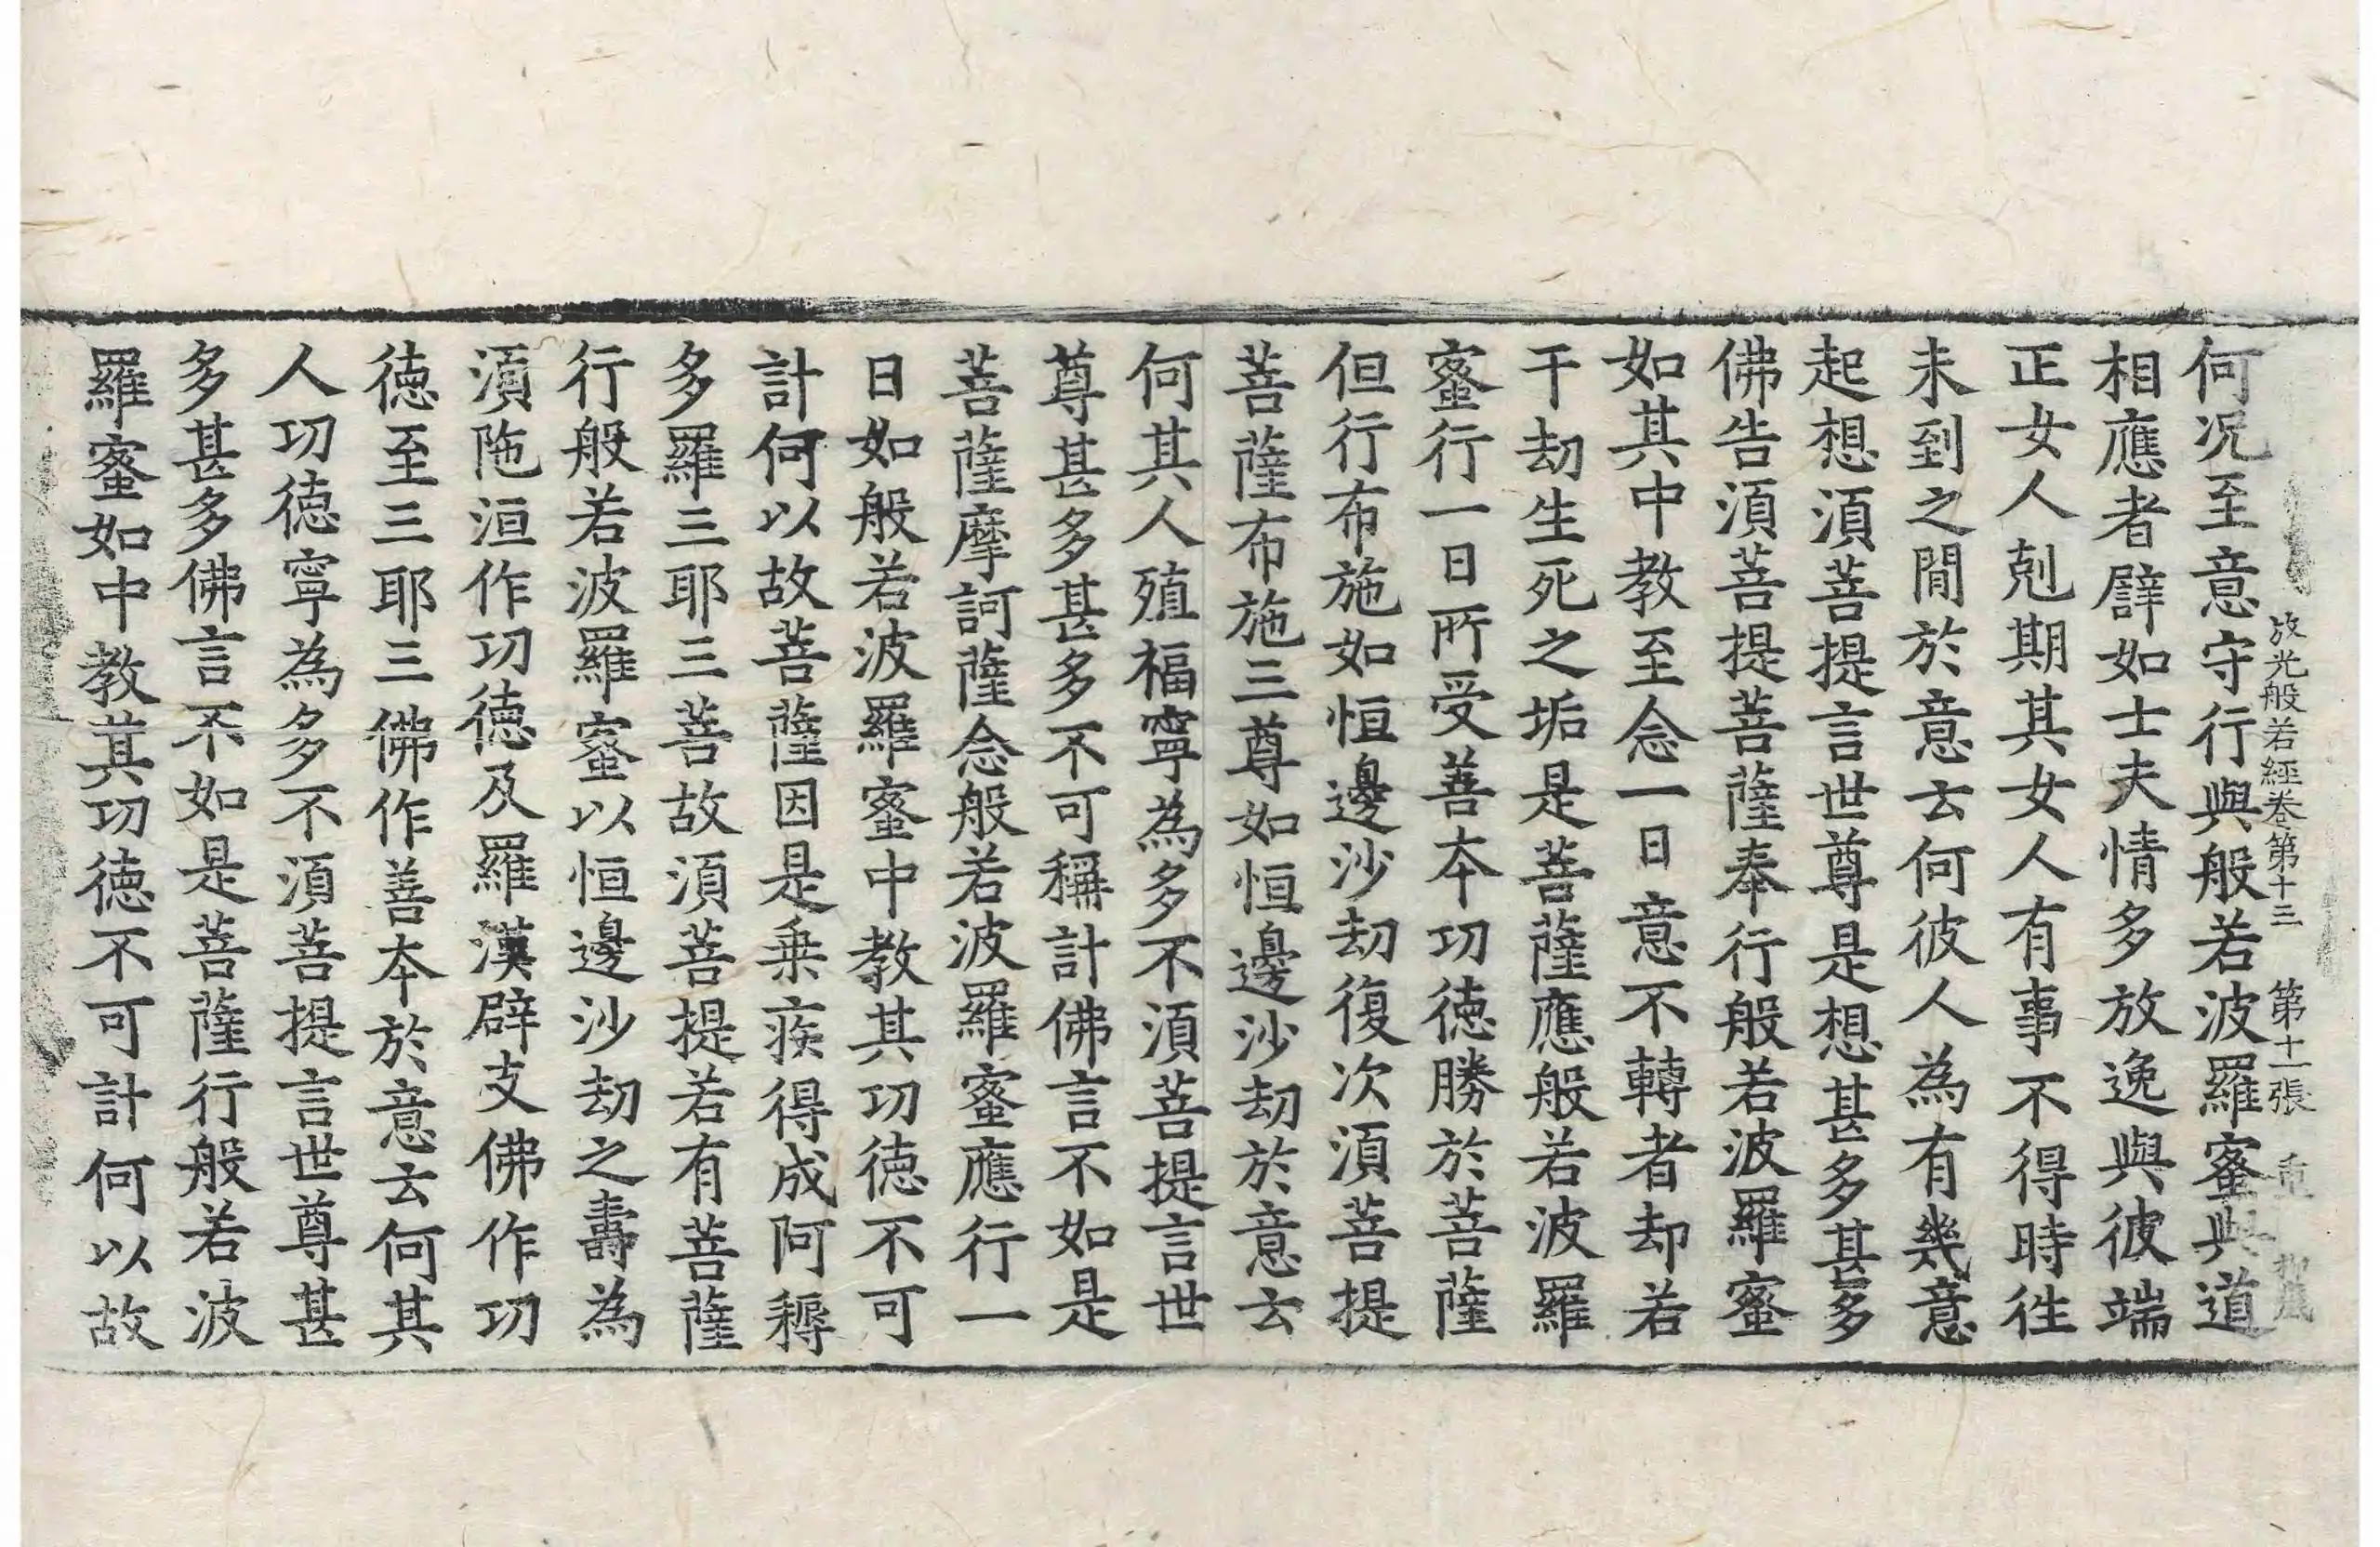 放光般若經卷第十三　第十一張
何况至意守行與般若波羅蜜與道
相應者譬如士夫情多放逸與彼端
正女人剋期其女人有事不得時往
未到之間於意云何彼人為有幾意
起想須菩提言世尊是想甚多甚多
佛告須菩提菩薩奉行般若波羅蜜
如其中教至念一日意不轉者却若
干劫生死之垢是菩薩應般若波羅
蜜行一日所受善本功德勝於菩薩
但行布施如恒邊沙劫復次須菩提
菩薩布施三尊如恒邊沙劫於意云
何其人殖福寧為多不須菩提言世
尊甚多甚多不可稱計佛言不如是
菩薩摩訶薩念般若波羅蜜應行一
日如般若波羅蜜中教其功德不可
計何以故菩薩因是乗疾得成阿耨
多羅三耶三菩故須菩提若有菩薩
行般若波羅蜜以恒邊沙劫之壽為
須陁洹作功德及羅漢辟支佛作功
德至三耶三佛作善本於意云何其
人功德寧為多不須菩提言世尊甚
多甚多佛言不如是菩薩行般若波
羅蜜如中教其功德不可計何以故